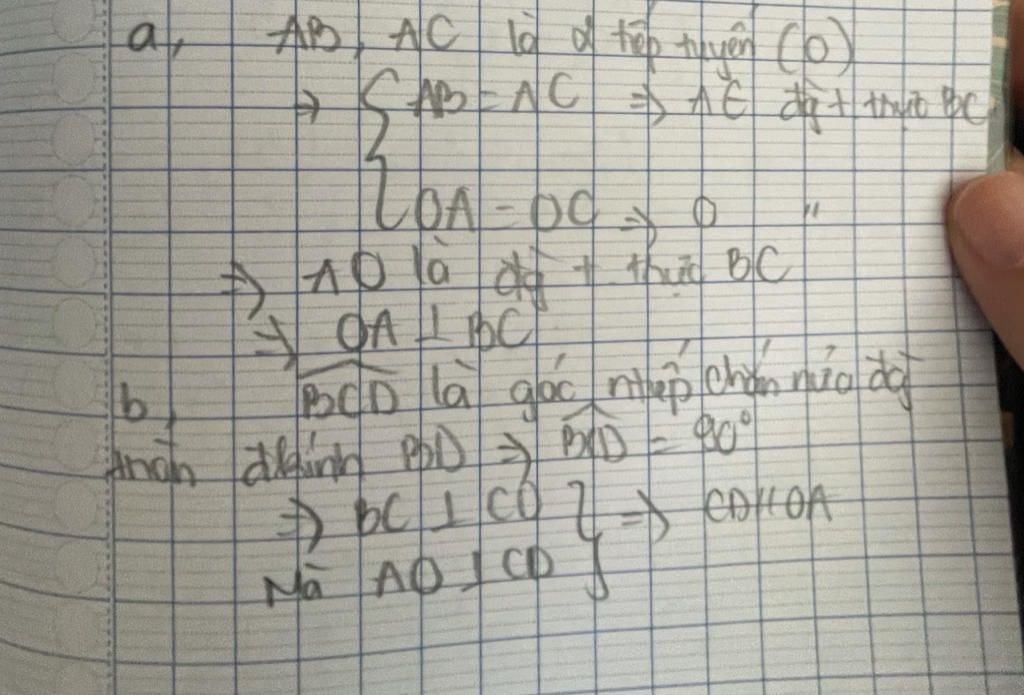 a, AB, AC là 2 tiếp tuyến (O)
=> { AB = AC => A ∈ đg t trực BC
OA = OC => O "
=> AO là đg t trực BC
=> OA ⊥ BC
b, BCD là góc ntiếp chắn nửa đg
tròn đkính BD => BCD = 90°
=> BC ⊥ CD } => CD // OA
Mà AO ⊥ CD